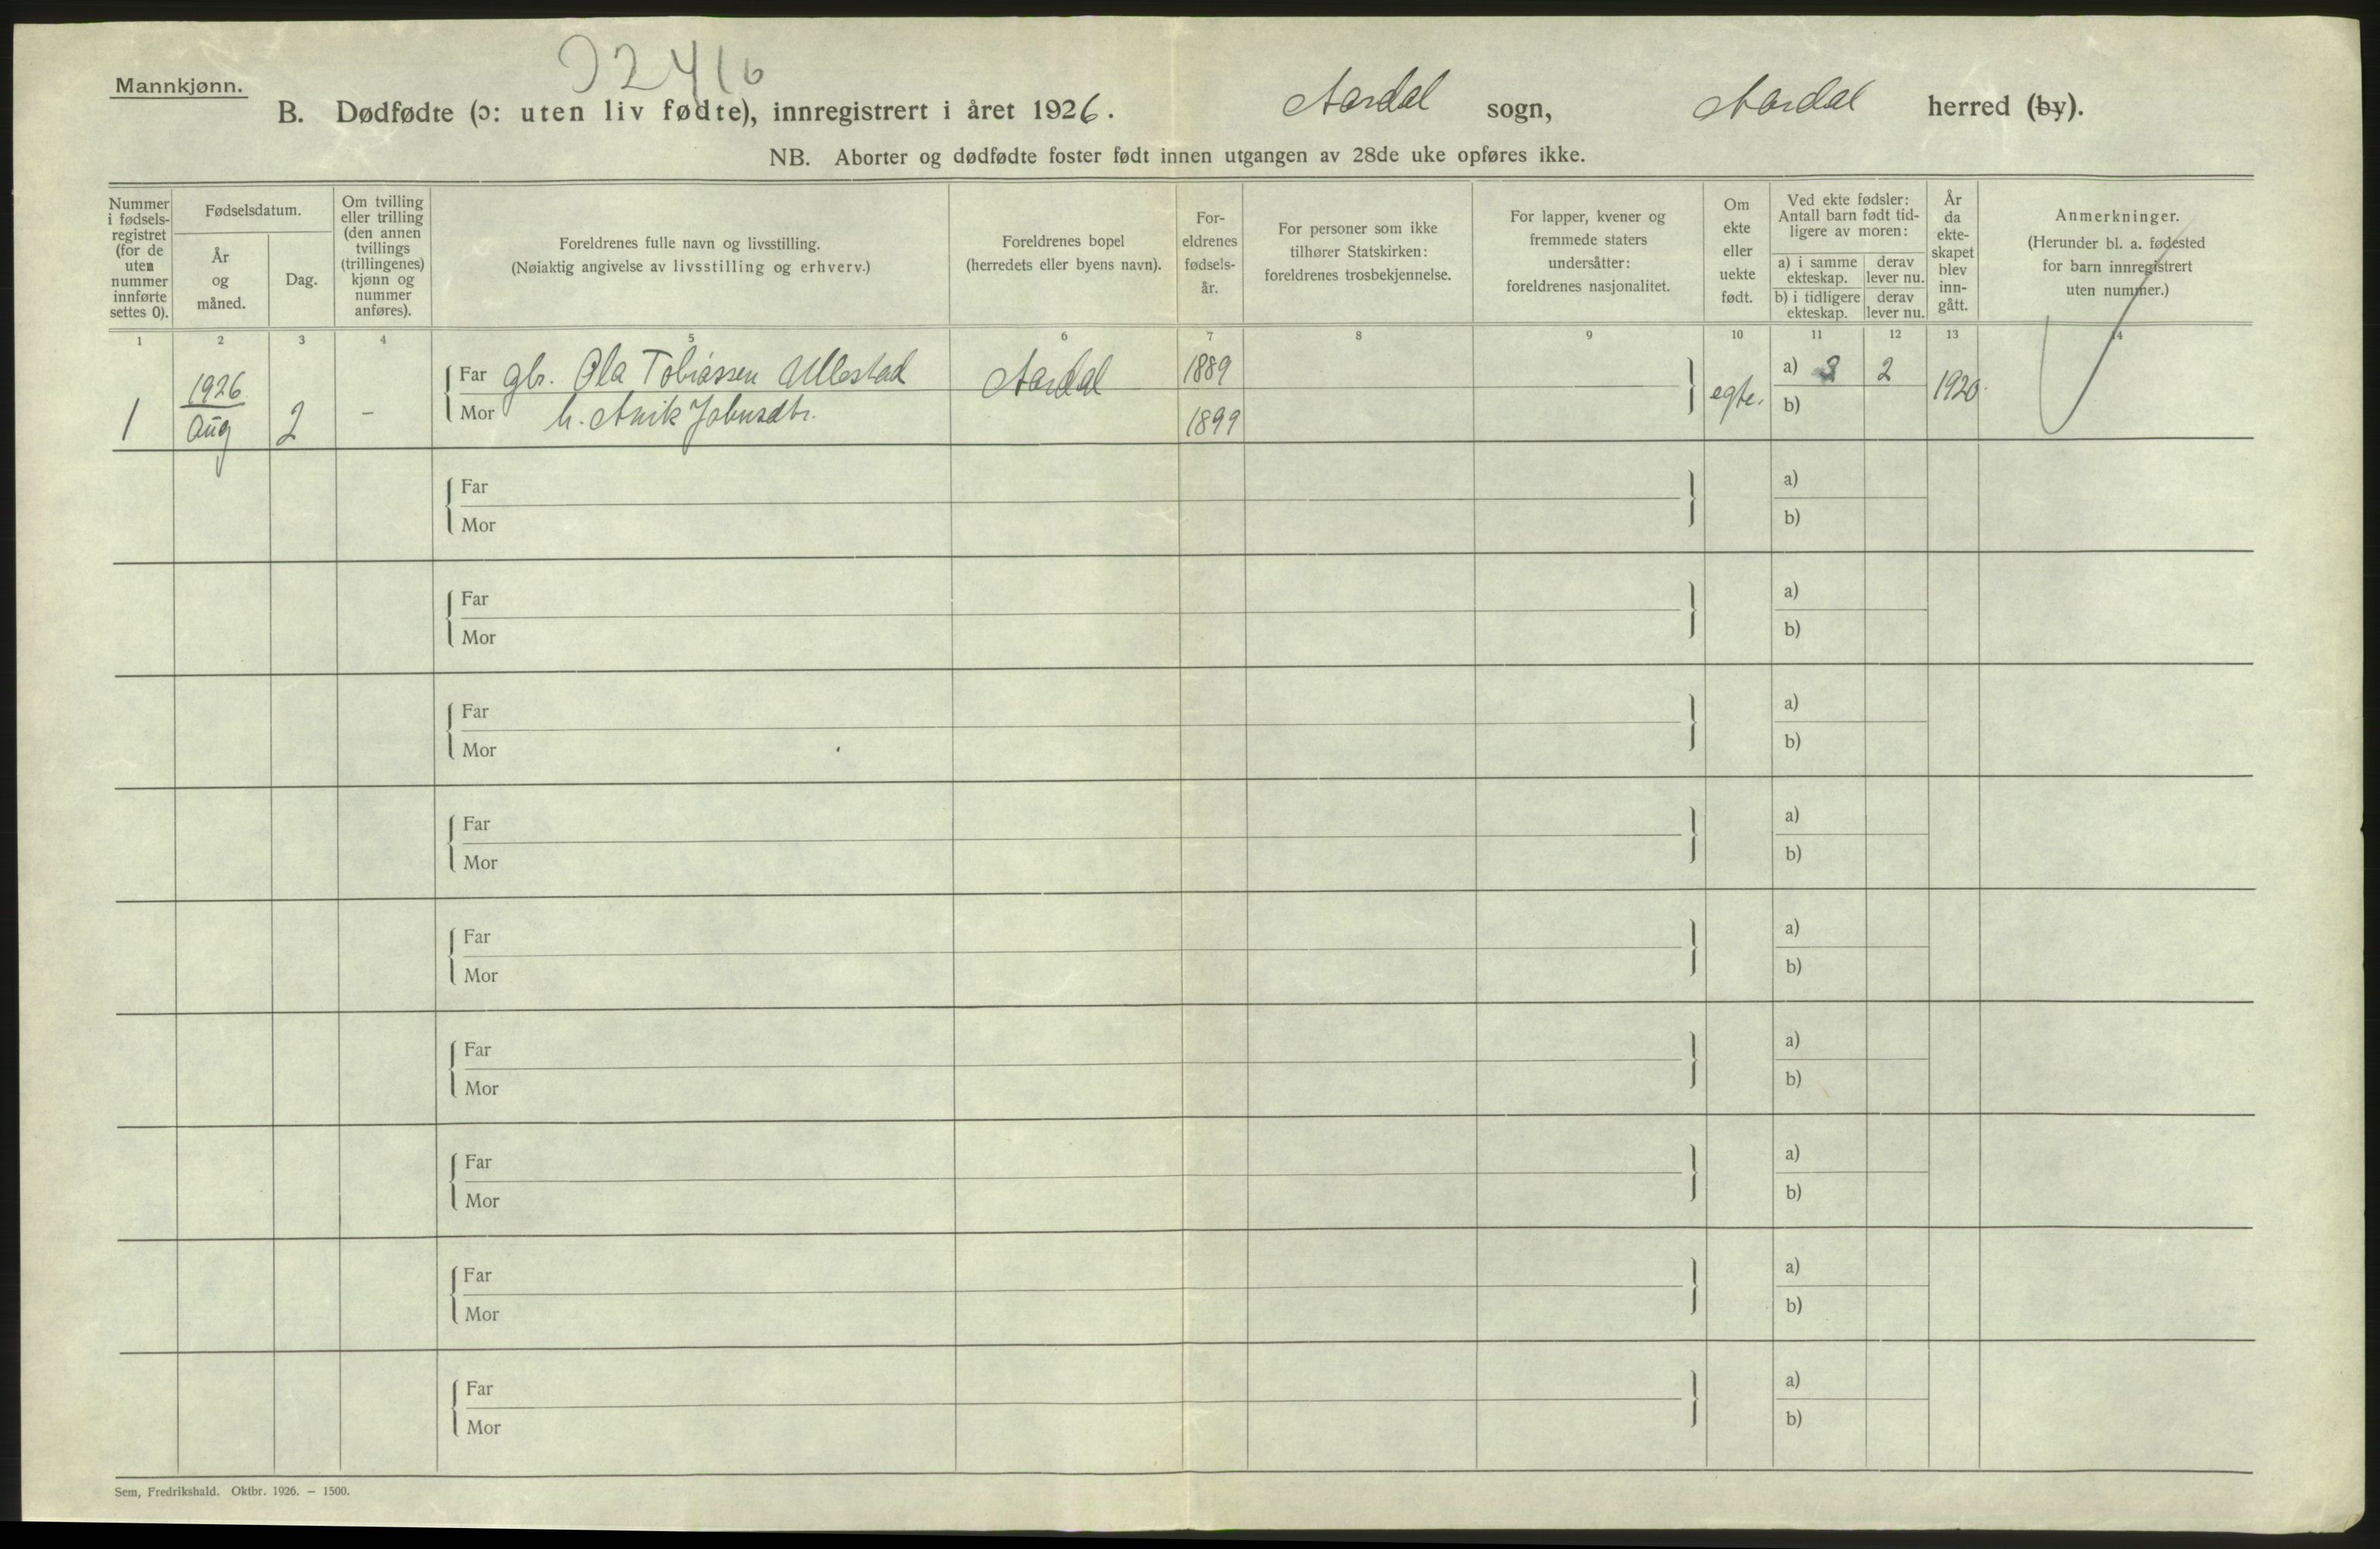 Mannkjønn.
B. Dødfødte (ɔ: uten liv fødte), innregistrert i året 1926. Aardal sogn, Aardal herred (by).
NB. Aborter og dødfødte foster født innen utgangen av 28de uke opføres ikke.
Nummer
i fødsels-
registret
(for de
uten
nummer
innførte
settes 0).
Fødselsdatum.
År
og
måned.
Dag.
Om tvilling
eller trilling
(den annen
tvillings
(trillingenes)
kjønn og
nummer
anføres).
Foreldrenes fulle navn og livsstilling.
(Nøiaktig angivelse av livsstilling og erhverv.)
Foreldrenes bopel
(herredets eller byens navn).
For-
eldrenes
fødsels-
år.
For personer som ikke
tilhører Statskirken:
foreldrenes trosbekjennelse.
For lapper, kvener og
fremmede staters
undersåtter:
foreldrenes nasjonalitet.
Om
ekte
eller
uekte
født.
Ved ekte fødsler:
Antall barn født tid-
ligere av moren:
a) i samme
ekteskap.
derav
lever nu.
b) i tidligere
ekteskap.
derav
lever nu.
År
da
ekte-
skapet
blev
inn-
gått.
Anmerkninger.
(Herunder bl. a. fødested
for barn innregistrert
uten nummer.)
1 2 3 4 5 6 7 8 9 10 11 12 13 14
1
1926
Aug
2
-
Far gbr. Ola Tobiassen Ullestad
Mor h. Johnsdtr.
Aardal
1889
1899
egte.
a) 3 2
b)
1920.
Far
Mor
a)
b)
Far
Mor
a)
b)
Far
Mor
a)
b)
Far
Mor
a)
b)
Far
Mor
a)
b)
Far
Mor
a)
b)
Far
Mor
a)
b)
Far
Mor
a)
b)
Far
Mor
a)
b)
Sem, Fredrikshald. Oktbr. 1926. – 1500.